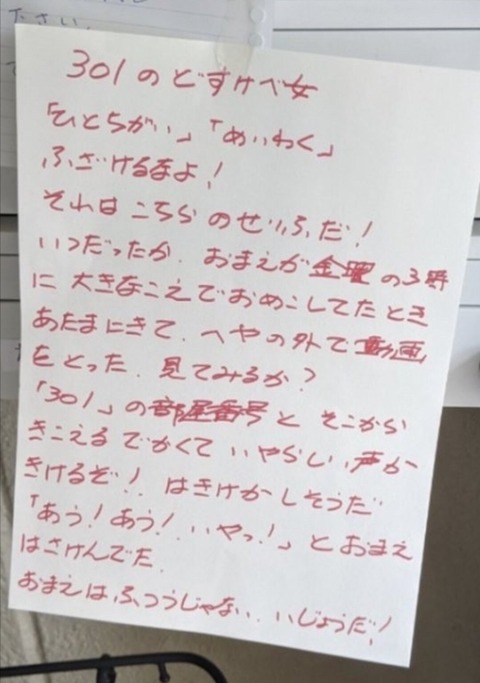 ださい。
301のどすけべ女
「ひとちがい」「めいわく」
ふざけるなよ!
それはこちらのせりふだ!
いつだったか、おまえが金曜の3時
に大きなこえでおめこしてたとき
あたまにきて、へやの外で動画
をとった、見てみるか?
「301」の部屋番号とそこから
きこえるでかくていやらしい声が
きけるぞ!はきけがしそうだ
「あう!あう!いやっ!」とおまえ
はさけんでた。
おまえはふつうじゃない、いじょうだ!